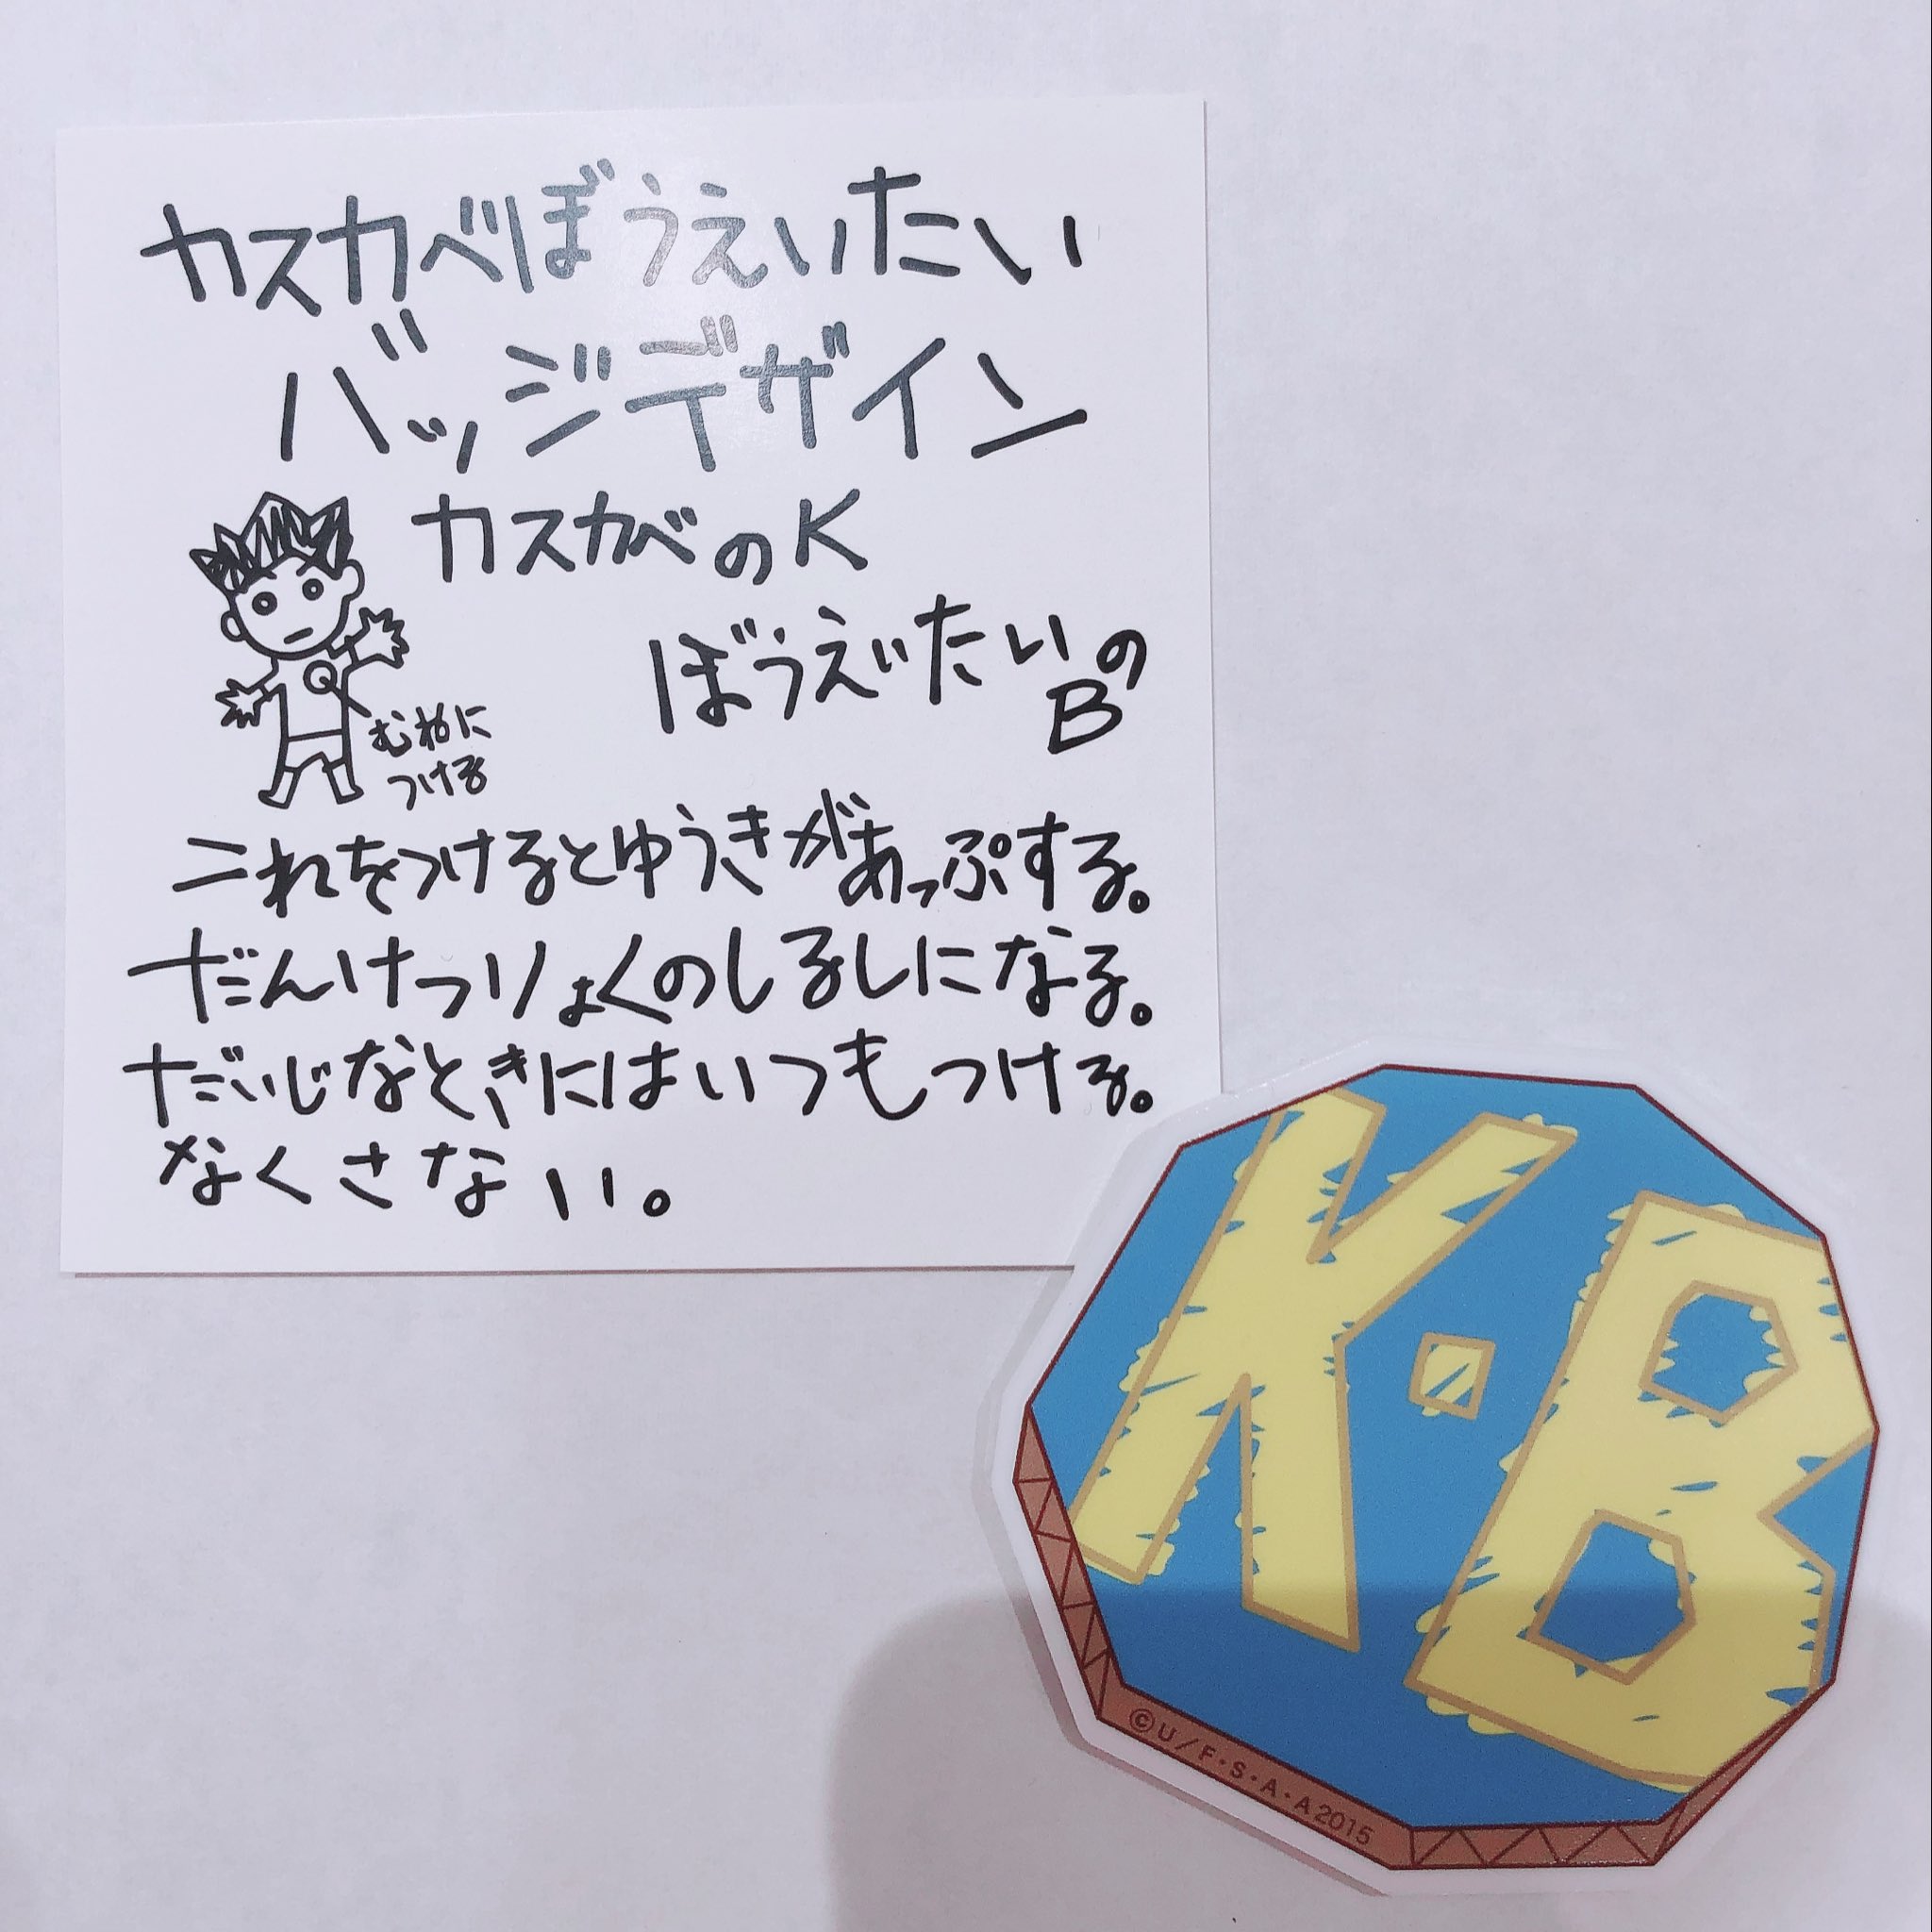 カスカベぼうえいたい
バッジデザイン
カスカベのK
ぼうえいたいの
B
むねに
つける
これをつけるとゆうきがあっぷする。
だんけつりょくのしるしになる。
だいじなときにはいつもつける。
なくさない。
K・B
©U/F・S・A・A 2015